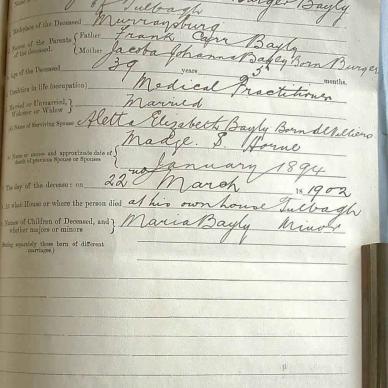 Burger Bayly
of Tulbagh
Birthplace of the Deceased } Murraysburg
Names of the Parents of the deceased. { Father Frank Carr Bayly
Mother Jacoba Johanna Bayly Born Burger
Age of the Deceased 39 years 5 months.
Condition in life (occupation) Medical Practitioner
Married or Unmarried, Widower or Widow } Married
Name of Surviving Spouse Aletta Elizabeth Bayly Born de Villiers
Name or names and approximate date of death of previous Spouse or Spouses } Madge. S Horne
January 1894
The day of the decease: on 22 March 1902
At what House or where the person died at his own house Tulbagh
Names of Children of Deceased, and whether majors or minors } Maria Bayly Minor
(Stating separately those born of different marriages.)